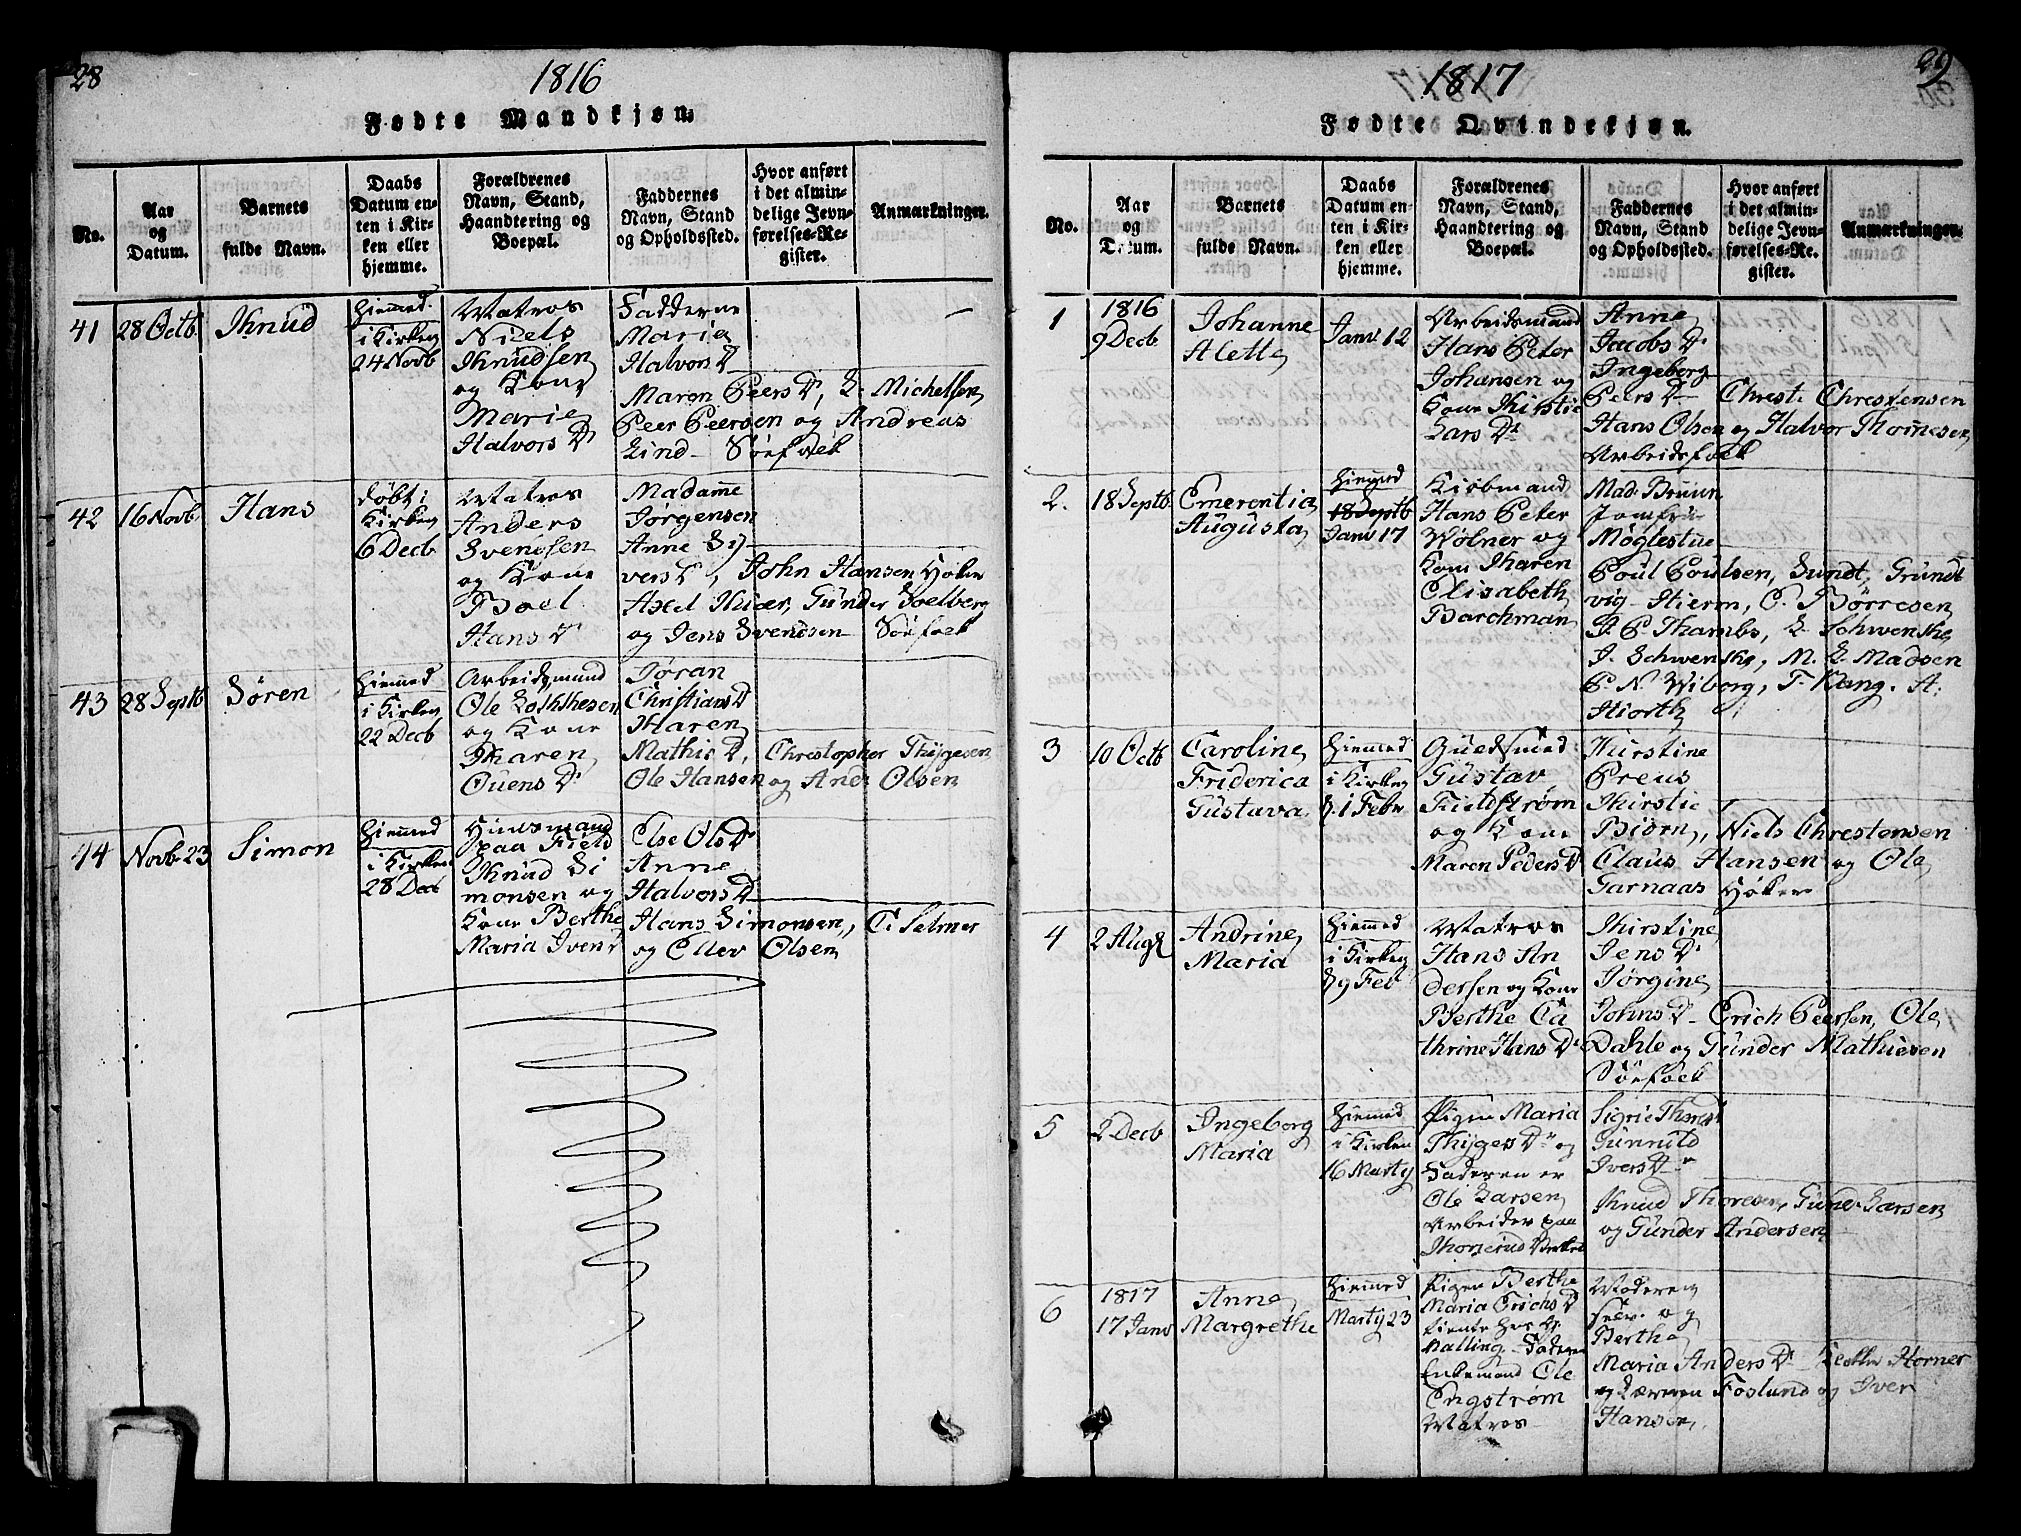 28
1816
Fødte Mandkjøn.
No.
Aar
og
Datum.
Barnets
fulde Navn.
Daabs
Datum en-
ten i Kir-
ken eller
hjemme.
Forældrenes
Navn, Stand,
Haandtering og
Boepæl.
Faddernes
Navn, Stand
og Opholdssted.
Hvor anført
i det almin-
delige Jevn-
førelses-Re-
gister.
Anmærkninger.
41
28 Octb
Knud
Hiemmed
i Kirken
24 Novb
Matros
Niels
Knudsen
og Kone
Marie
Halvors D
Fadderne
Maria
Halvors D
Maren Peers D, L. Michelsen
Peer Peersen og Andreas
Lind - Søefolk
42
16 Novb
Hans
døbt i
Kirken
6 Decb
Matros
Anders
Svendsen
og Kone
Boel
Hans D
Madame
Jørgensen
Anne Sy-
vers D, John Hansen Høker
Axel Kiær, Gunder Soelberg
og Jens Svendsen Søefolk
43
28 Septb
Søren
Hiemmed
i Kirken
22 Decb
Arbeidsmand
Ole
og Kone
Karen
Ouens D
Jøran
Christians D
Karen
Mathie D, Christopher Thygesen
Ole Hansen og And: Olsen
44
Novb 23
Simon
Hiemmed
i Kirken
28 Decb
Huusmand
paa Field
Knud Si
monsen og
Kone Berthe
Maria Iven D
Else Ols D
Anne
Halvors D
Hans Simonsen, C. Selmer
og Ellev Olsen
29
1817
Fødte Qvindekjøn.
No.
Aar
og
Datum.
Barnets
fulde Navn.
Daabs
Datum en-
ten i Kir-
ken eller
hjemme.
Forældrenes
Navn, Stand,
Haandtering og
Boepæl.
Faddernes
Navn, Stand
og Opholdssted.
Hvor anført
i det almin-
delige Jevn-
førelses-Re-
gister.
Anmærkninger.
1
1816
9 Decb
Johanne
Alette
Janv 12
Arbeidsmand
Hans Peter
Johansen og
Kone Kirstie
Lars D
Anne
Jacobs D
Ingeborg
Peers D Christ: Christensen
Hans Olsen og Halvor Thomesen
Arbeidsfolk
2.
18 Septb
Emerentia
Augusta
Hiemmed
18 Septb
Janv 17
Kiøbmand
Hans Peter
Wølner og
Kone Karen
Elisabeth
Barchman
Mad: Bruun
Jomfru
Møglestue
Poul Poulsen, Sundt, Grundt
vig - Hierm, C. Børresen
J. P. Thambs, L. Schwenske
J. Schwenske, M. L. Madsen
P. N. Wiborg, T. Klang. A.
Hiorth
3
10 Octb
Caroline
Friderica
Gustava
Hiemmed
i Kirken
d. 1 Febr
Guldsmed
Gustav
og Kone
Maren Peders D
Kirstine
Preus
Kirstie
Biørn, Niels Chrestensen
Claus Hansen og Ole
Garnaas Høker
4
2 Augs
Andrine
Maria
Hiemmed
i Kirken
d 9 Feb
Matros
Hans An
dersen og Kone
Berthe Ca
thrine Hans D
Kirstine
Jens D
Jørgine
Johns D - Erich Peersen, Ole
Dahle og Gunder Mathiesen
Søefolk
5
2 Decb
Ingeborg
Maria
Hiemmed
i Kirken
16 Marty
Pigen Maria
Thyges D og
Faderen er
Ole Larsen
Arbeider paa
Sigrie Thores D
Gunnild
Ivers D
Knud Thoresen, Gund: Larsen
og Gunder Andersen
6
1817
17 Janv
Anne
Margrethe
Hiemmed
Marty 23
Pigen Berthe
Maria Erichs D
tiente hos H.
Malling - Faderen
Enkemand Ole
Engstrøm
Matros
Moderen
selv og
Berthe
Maria Anders D - Horner
og Foslund og Iver
Hansen